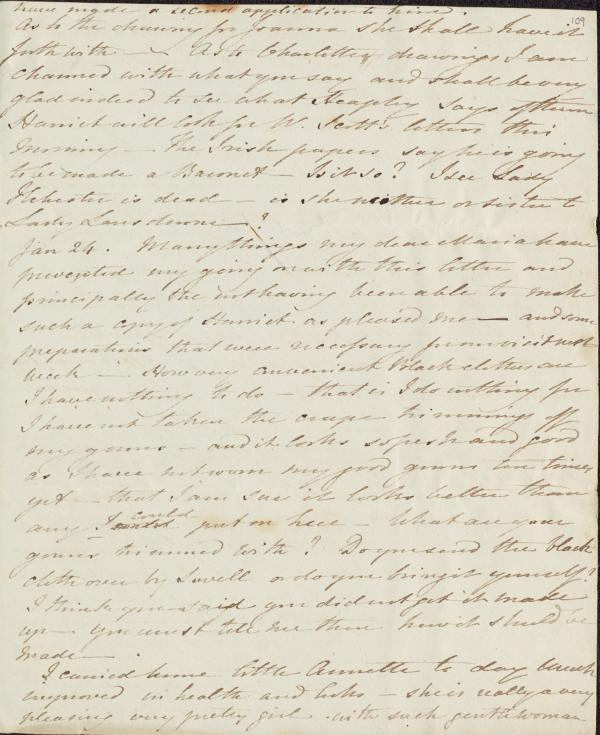 have made a second application to him.
109
As to the drawing for Joanna she shall have it
forthwith — As to Charlotte's drawings I am
charmed with what you say and shall be very
glad indeed to see what Heapley says of them
Harriet will look for W. Scott's letters this
morning — The Irish papers say he is going
to be made a Baronet — Is it so? I see Lady
Ilchester is dead — is she mother or sister to
Lady Lansdowne?
Jan 24. Many things my dear Maria have
prevented my going on with this letter and
principally the not having been able to make
such a copy of Harriet as pleased me — and some
preparations that were necessary for our visit next
week — How very convenient Black clothes are
I have nothing to do — that is I do nothing for
I have not taken the crape trimmings off
my gowns — and it looks so fresh and good
as I have not worn my good gowns ten times
yet — that I am sure it looks better than
any I could put on here — What are your
gowns trimmed with? Do you send the black
cloth over by Lovell or do you bring it yourself?
I think you said you did not get it made
up — you must tell me then how it should be
made —
I carried home little Annette to day much
improved in health and looks — she is really a very
pleasing very pretty girl with such gentlewoman